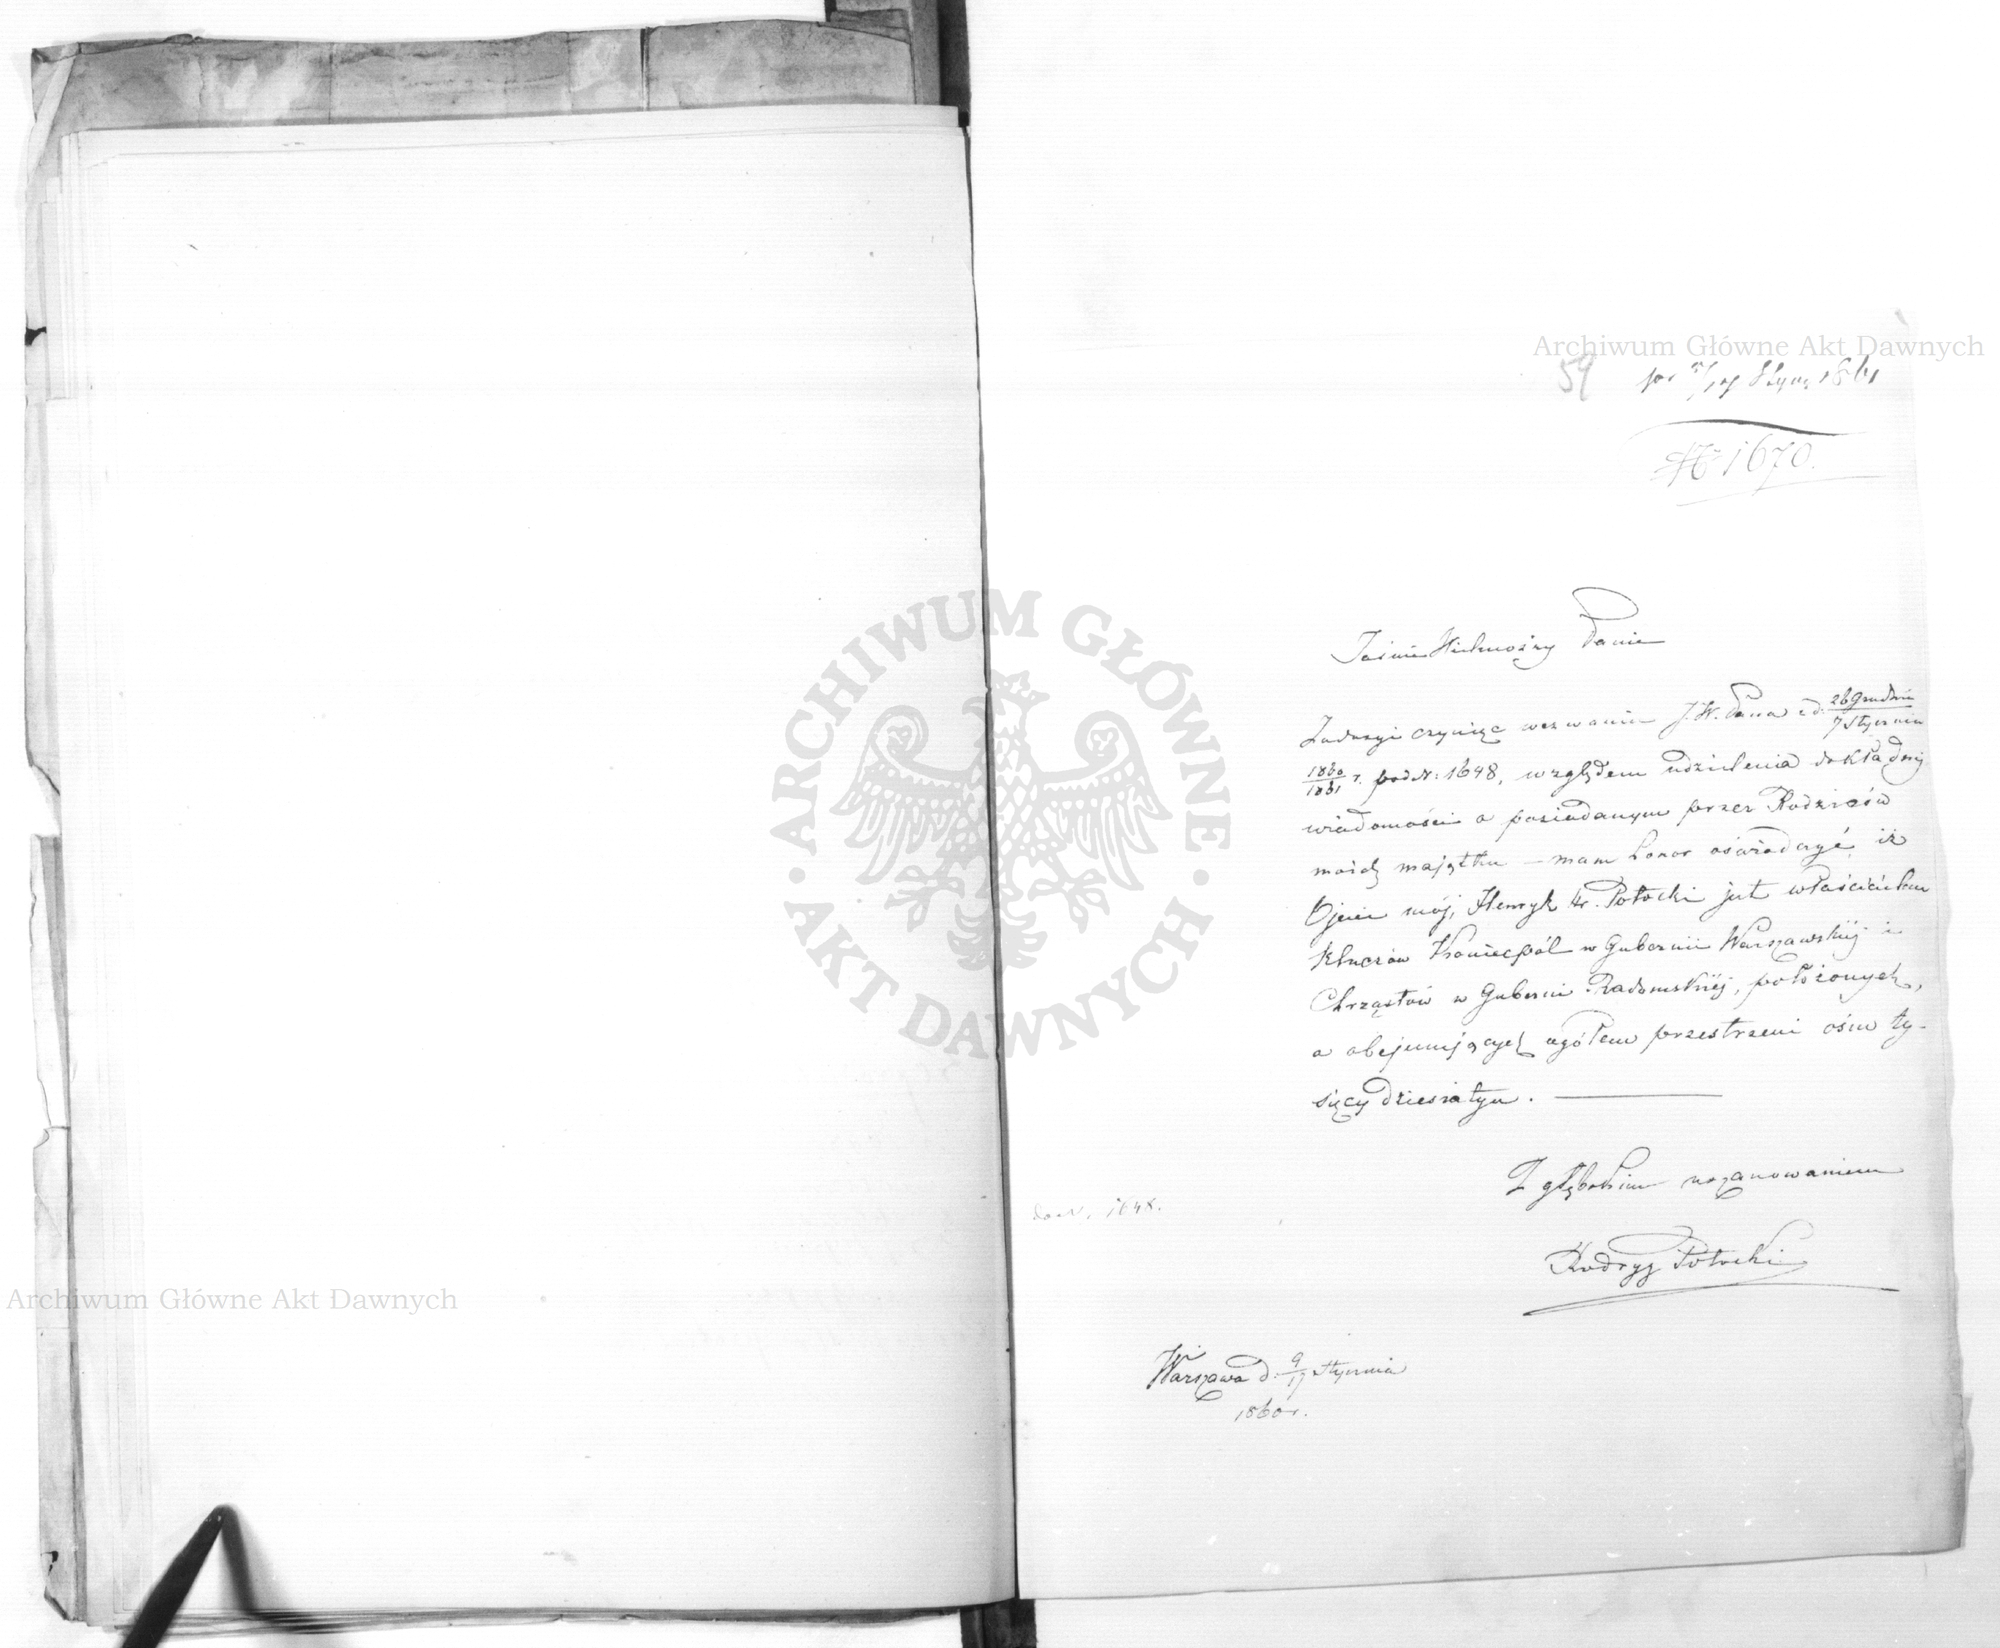 Archiwum Główne Akt Dawnych
59
5/17 Stycz 1861
№ 1670.
Jaśnie Wielmożny Panie
Zadosyć czyniąc wezwaniu J.W. Pana z d. 26 Grudnia / 7 Stycznia
1860/1861 r. pod N: 1648, względem udzielenia dokładnej
wiadomości o posiadanym przez Rodziców
moich majątku – mam honor oświadczyć, iż
Ojciec mój, Henryk hr. Potocki jest właścicielem
Kluczów Koniecpól w Gubernii Warszawskiéj i
Chrząstów w Guberni Radomskiéj, położonych,
a obejmujących ogółem przestrzeni ośm ty-
sięcy dziesiatyn.
Z głębokim uszanowaniem
do N. 1648.
Potocki
Warszawa d. Stycznia
1860 r.
Archiwum Główne Akt Dawnych
ARCHIWUM GŁÓWNE
AKT DAWNYCH